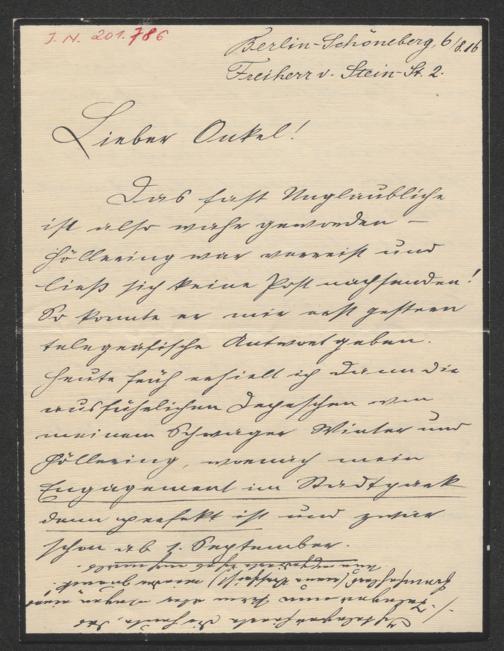 J. N. 201.786
Berlin-Schöneberg, 6/8.16
Freiherr v. Stein-St. 2.
Lieber Onkel!
Das fast Unglaubliche
ist also wahr geworden –
Höllering war verreist und
ließ sich keine Post nachsenden!
So konnte er mir erst gestern
telegrafische Antwort geben.
Heute früh erhielt ich dann die
ausführlichen Depeschen von
meinem Schwager Winter und
Höllering, wonach mein
Engagement im Stadtpark
denn perfekt ist und zwar
schon ab 1. September.
Ich telegrafierte dir heute, daß